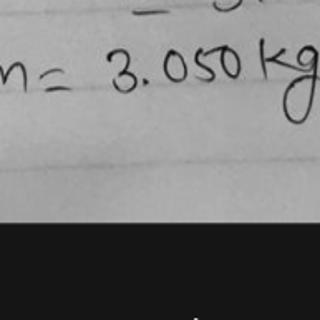 m = 3.050 kg